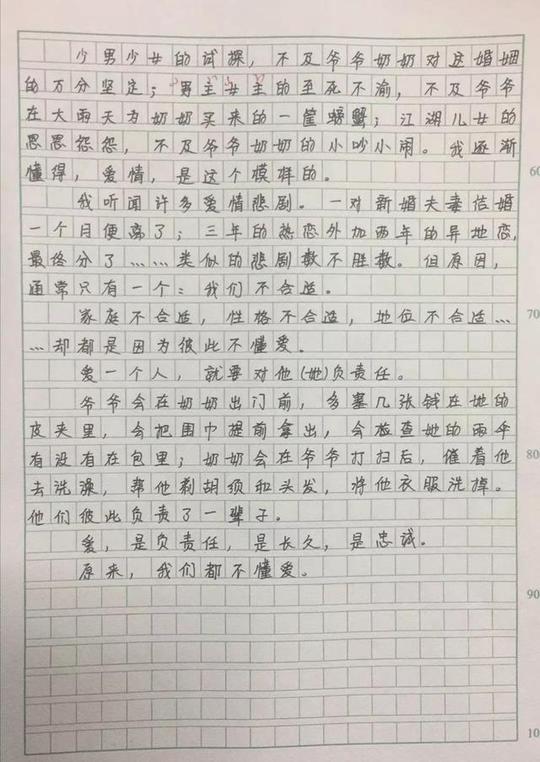 少男少女的试探，不及爷爷奶奶对这婚姻
的万分坚定；男主女主的至死不渝，不及爷爷
在大雨天为奶奶买来的一筐螃蟹；江湖儿女的
恩恩怨怨，不及爷爷奶奶的小吵小闹。我逐渐
懂得，爱情，是这个模样的。
我听闻许多爱情悲剧。一对新婚夫妻结婚
一个月便离了；三年的热恋外加两年的异地恋，
最终分了……类似的悲剧数不胜数。但原因，
通常只有一个：我们不合适。
家庭不合适，性格不合适，地位不合适……
……却都是因为彼此不懂爱。
爱一个人，就要对他(她)负责任。
爷爷会在奶奶出门前，多塞几张钱在她的
皮夹里，会把围巾提前拿出，会检查她的雨伞
有没有在包里；奶奶会在爷爷打扫后，催着他
去洗澡，帮他剃胡须和头发，将他衣服洗掉。
他们彼此负责了一辈子。
爱，是负责任，是长久，是忠诚。
原来，我们都不懂爱。
60
70
80
90
10